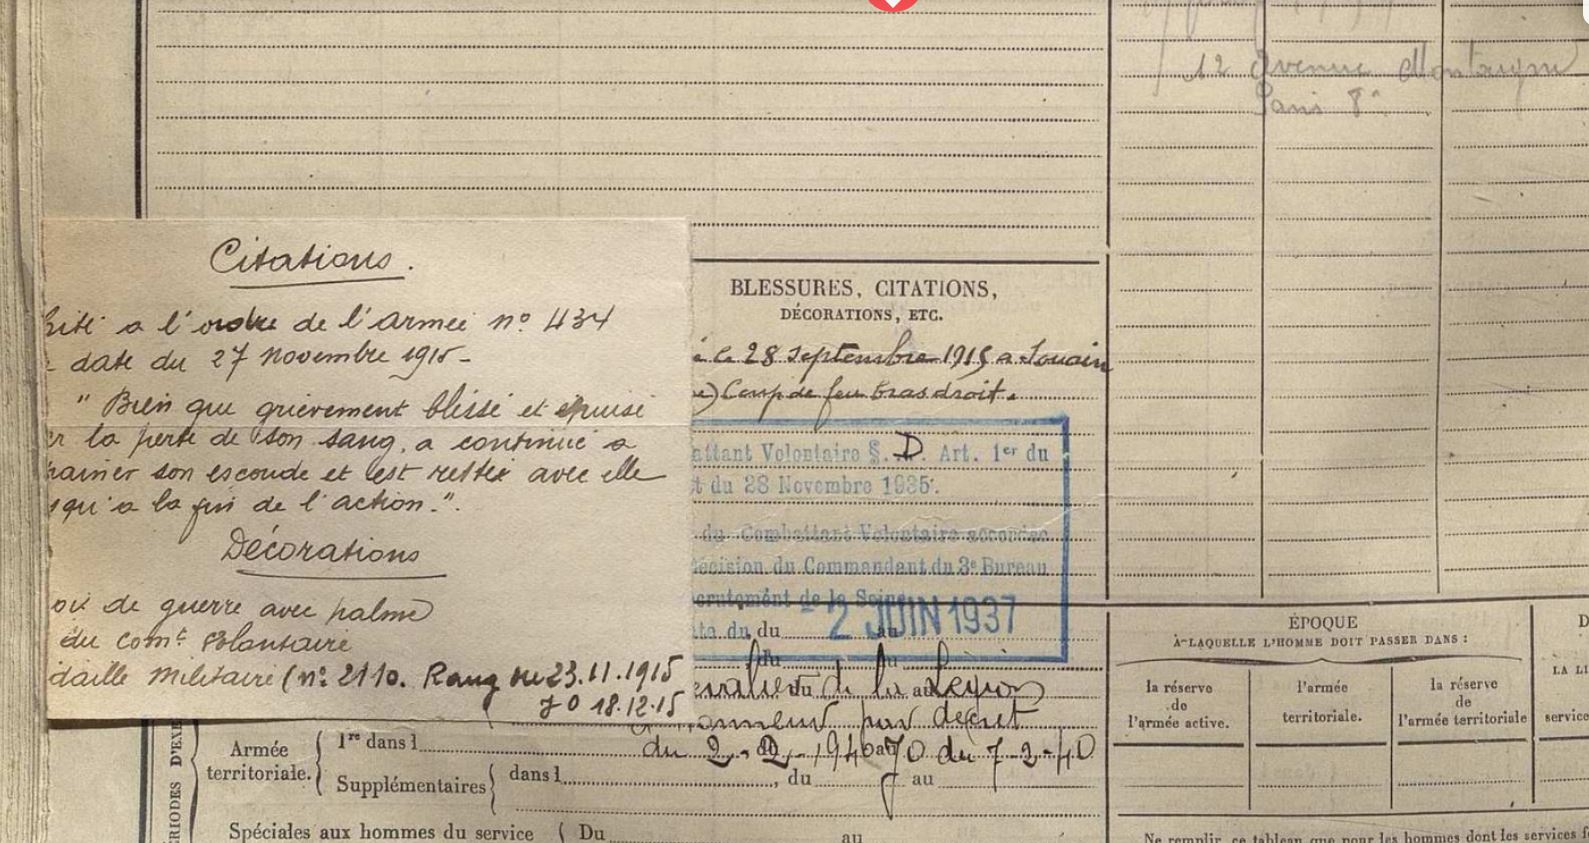 12 Avenue Montaigne
Paris 8e
Citations.
Cité a l'ordre de l'armée no 434
date du 27 Novembre 1915-
" Bien que grièvement blessé et épuisé
la perte de son sang, a continué a
son escouade et est rester avec elle
squ'a la fin de l'action.".
Décorations
oix de guerre avec palme
du comt volontaire
daille Militaire (no 2110. Rang du 23.11.1915
JO 18.12.15
BLESSURES, CITATIONS,
DÉCORATIONS, ETC.
é le 28 Septembre 1915 a Souain
Coup de feu bras droit.
attant Volontaire §. D. Art. 1er du
t du 28 Novembre 1935.
du Combattant Volontaire accordée
écision du Commandant du 3e Bureau
crutement de la Seine
ate du du 2 JUIN 1937 au
du au
evalier du de la au Légion
onneur par décret
du 2-2-1940 JO du 7-2-40
du au
ÉPOQUE
À LAQUELLE L'HOMME DOIT PASSER DANS :
la réserve
de
l'armée active.
l'armée
territoriale.
la réserve
de
l'armée territoriale
D
LA LI
service
RIODES D'EXE
Armée
territoriale.
1re dans l
Supplémentaires
dans l
Spéciales aux hommes du service
Du
au
Ne remplir ce tableau que pour les hommes dont les services